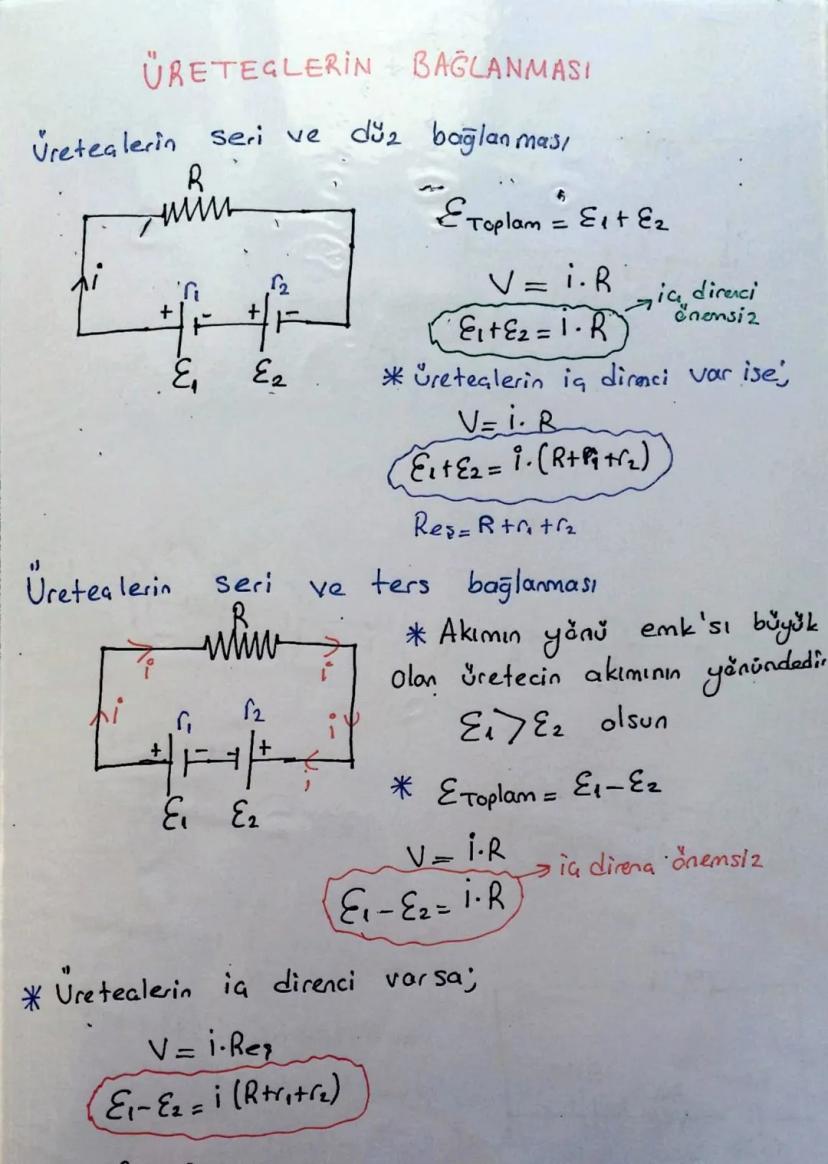 ÜRETEÇLERİN BAĞLANMASI
Üreteçlerin seri ve düz bağlanması
R
i
r₁ r₂
+ - + -
Ɛ₁ Ɛ₂
Ɛ Toplam = Ɛ₁ + Ɛ₂
V = i.R
Ɛ₁+Ɛ₂ = i.R → iç direnci önemsiz
* Üreteçlerin iç direnci var ise;
V = i.R
Ɛ₁+Ɛ₂ = i.(R+r₁+r₂)
Reş = R+r₁+r₂
Üreteçlerin seri ve ters bağlanması
R
i i
i i
r₁ r₂
+ - +
i
Ɛ₁ Ɛ₂
* Akımın yönü emk'sı büyük
olan üretecin akımının yönündedir
Ɛ₁ > Ɛ₂ olsun
* Ɛ Toplam = Ɛ₁-Ɛ₂
V = i.R
Ɛ₁-Ɛ₂ = i.R → iç direnci önemsiz
* Üreteçlerin iç direnci varsa;
V = i.Reş
Ɛ₁-Ɛ₂ = i (R+r₁+r₂)